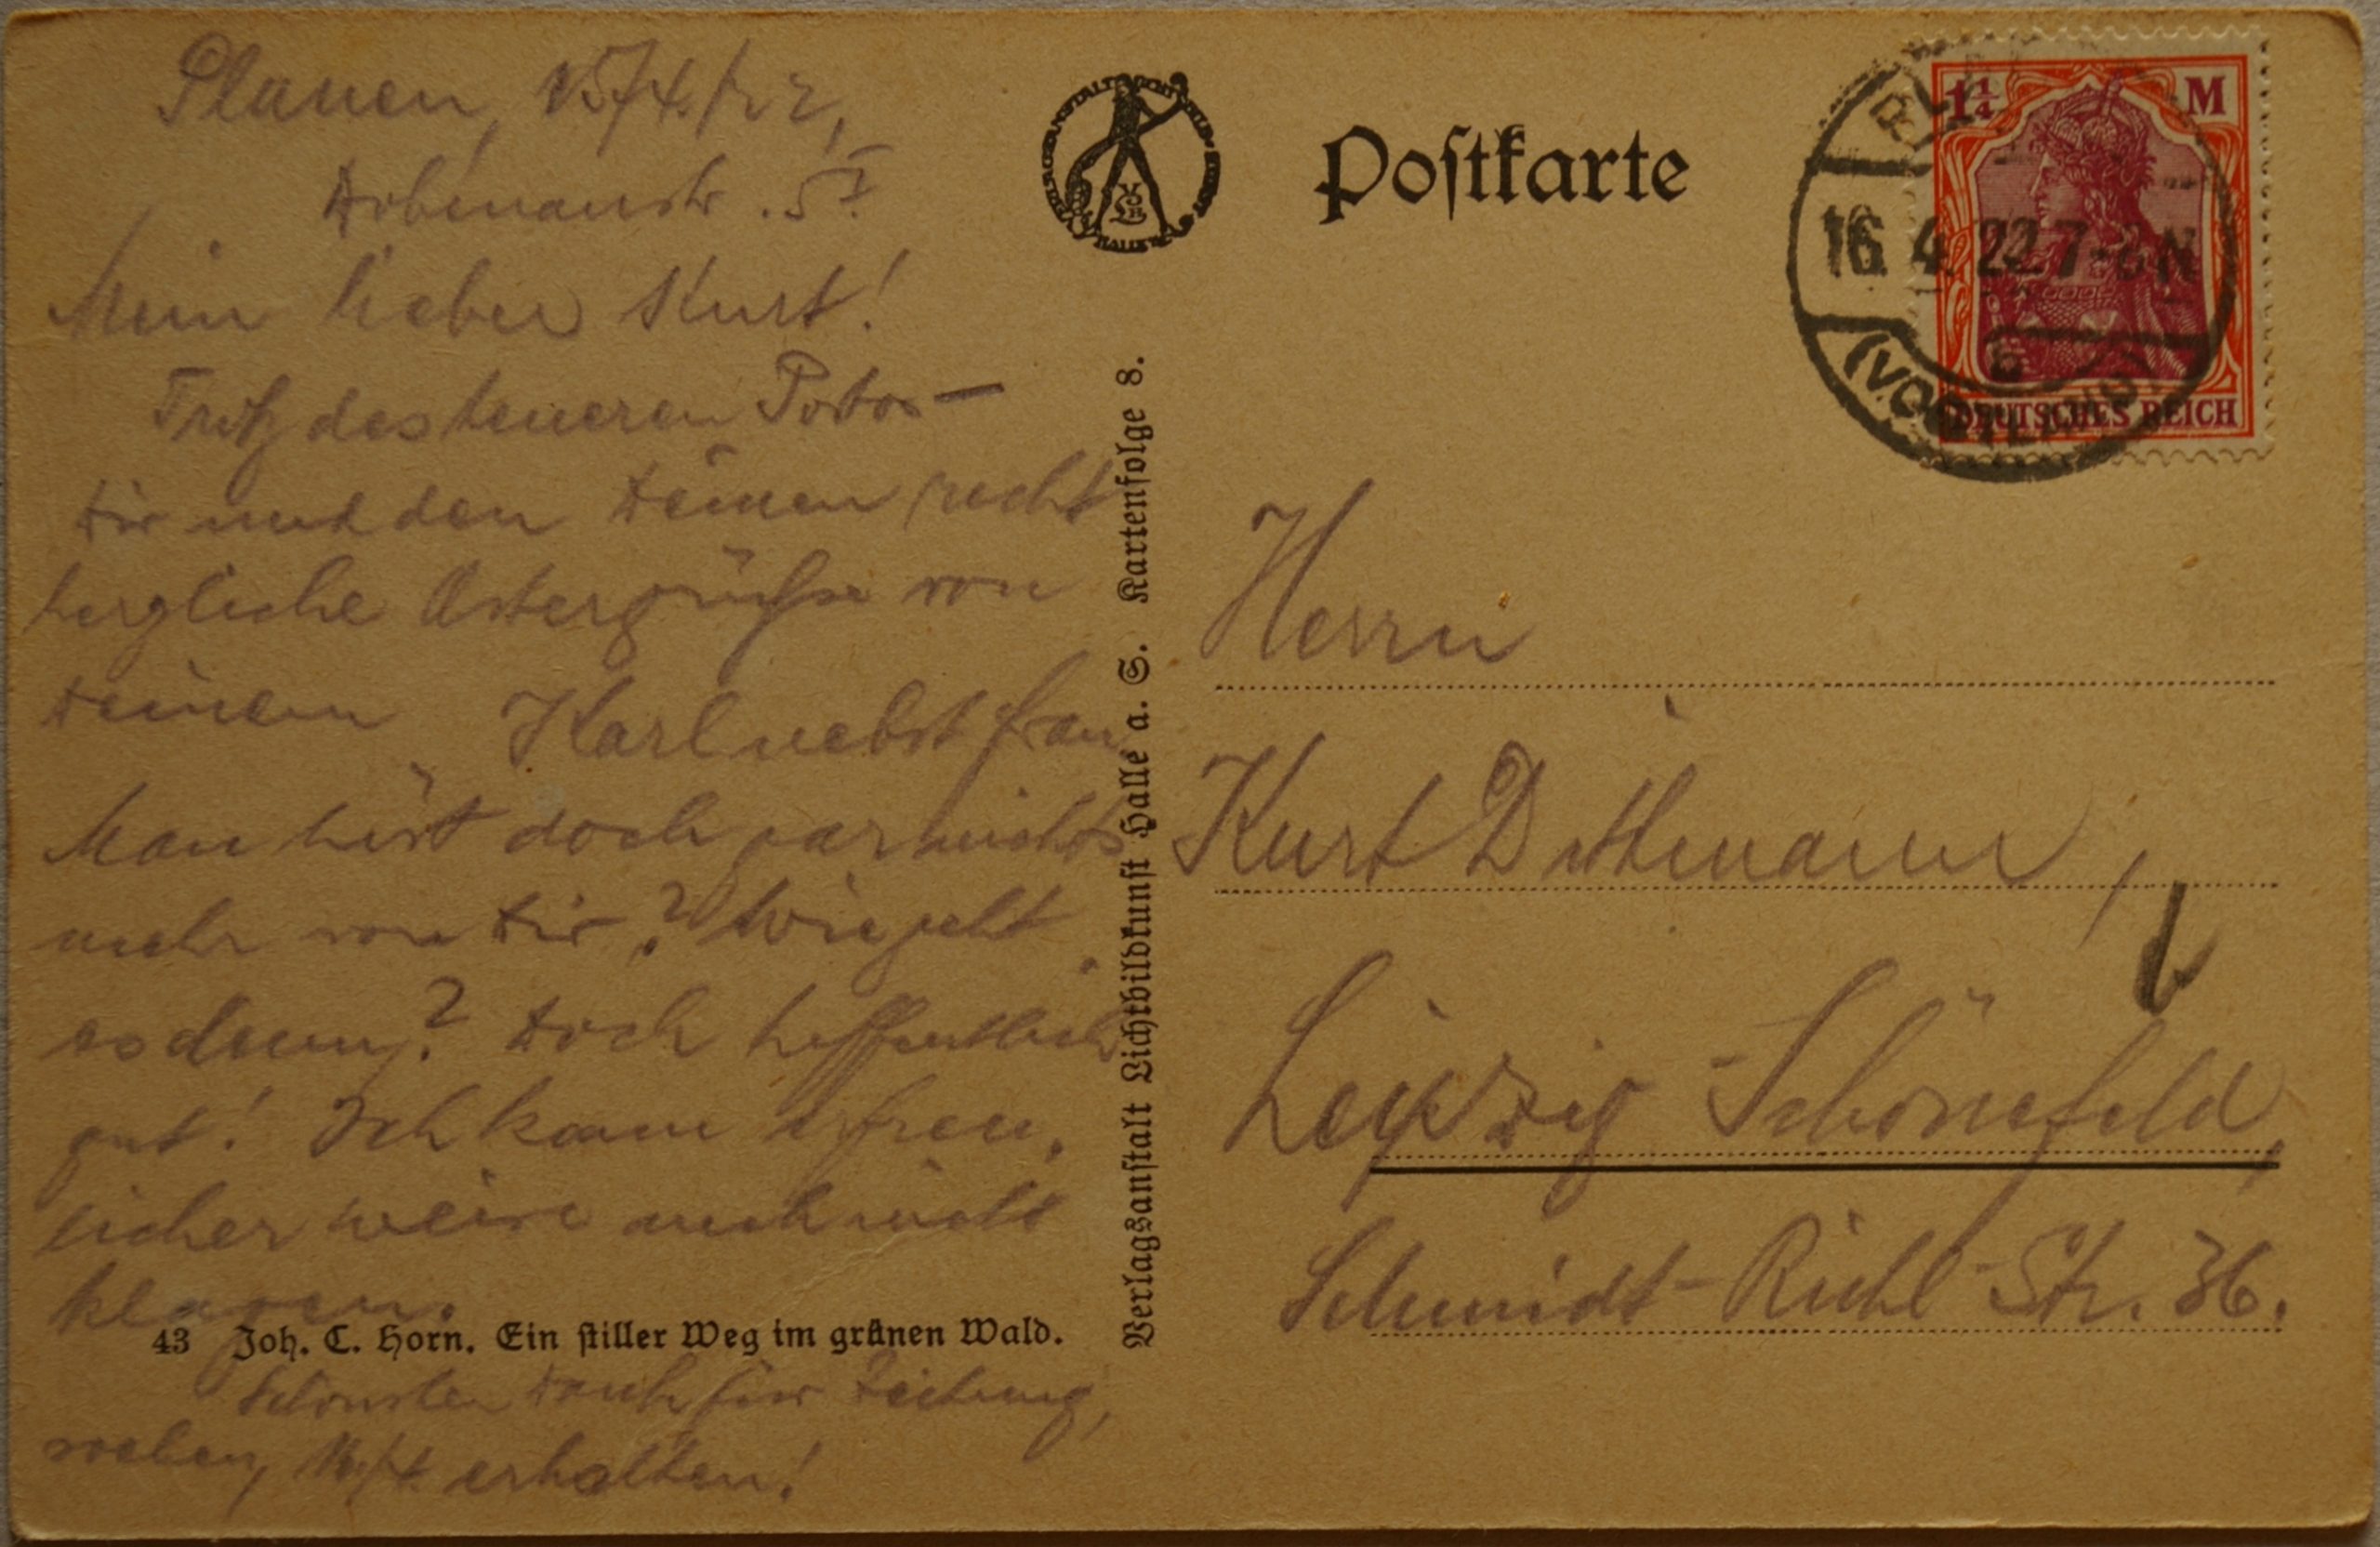 Plauen, 15/4./22,
Dobenaustr. 5 I.
Mein lieber Kurt!
Trotz des teueren Portos —
Dir und den Deinen recht
herzliche Ostergrüße von
Deinem Karl nebst Frau
Man hört doch gar nichts
mehr von Dir? Wie geht
es denn? Doch hoffentlich
gut! Ich kann erfreu-
licher weise auch nicht
klagen.
43 Joh. C. Horn. Ein stiller Weg im grünen Wald.
Schönsten Dank für Zeitung,
soeben, 16/4. erhalten!
Verlagsanstalt Lichtbildkunst Halle a. S. Kartenfolge 8.
Postkarte
1¼ M
DEUTSCHES REICH
16.4.22.7-8N
(VOGTLAND)
Herrn
Kurt Dittmann,
Leipzig-Schönefeld,
Schmidt-Rühl-Str. 36.